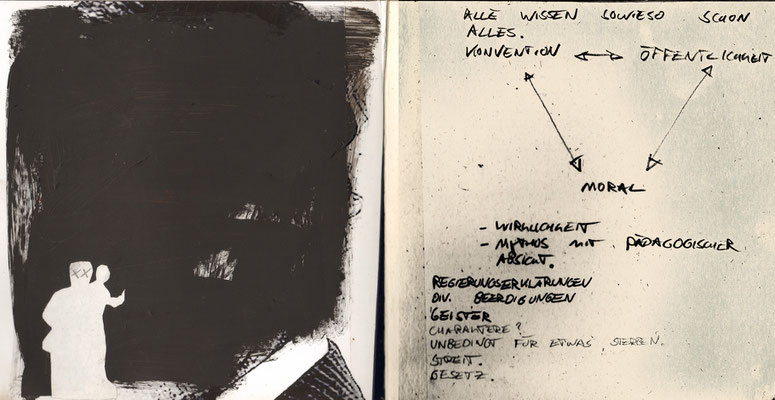 ALLE WISSEN SOWIESO SCHON
ALLES.
KONVENTION ↔ ÖFFENTLICHKEIT
MORAL
- WIRKLICHKEIT
- MYTHOS MIT PÄDAGOGISCHER
ABSICHT.
REGIERUNGSERKLÄRUNGEN
DIV. BEERDIGUNGEN
GEISTER
CHARAKTERE?
UNBEDINGT FÜR ETWAS STERBEN.
STREIT.
GESETZ.